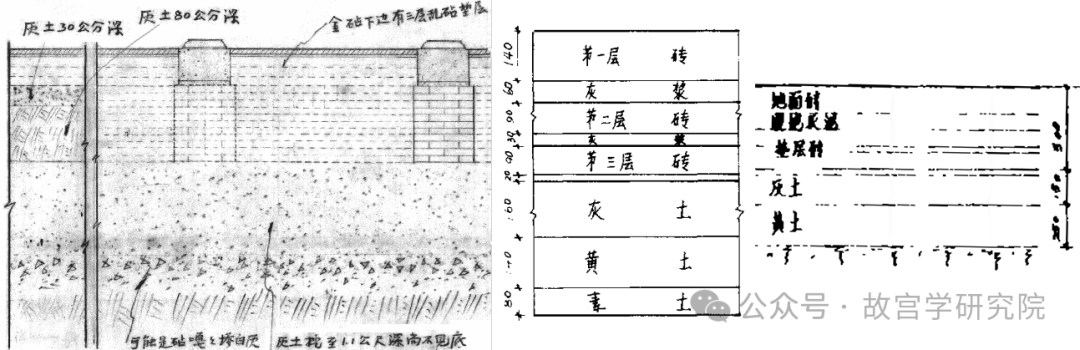 灰土30公分深
灰土80公分深
金砖下边有三层乱砖垫层
灰土挖至1.1公尺深尚不见底
第一层 砖
灰 浆
第二层 砖
灰 浆
第三层 砖
灰 土
黄 土
素 土
140
60
90
160
地面砖
垫层砖
灰土
黄土
公众号·故宫学研究院